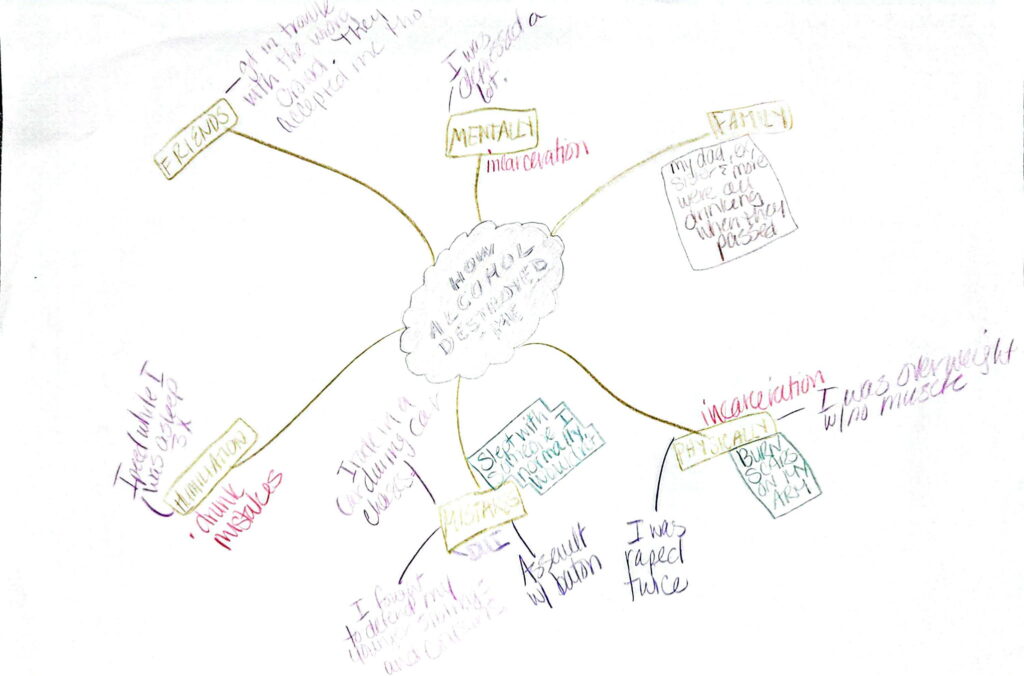 got in trouble
with the wrong
crowd. They
accepted me tho.
FRIENDS
I was
depressed a
lot.
MENTALLY
incarceration
FAMILY
my dad, ex,
sister & more
were all
drinking
when they
passed
HOW
ALCOHOL
DESTROYED
ME
I peed while I
was asleep
3x
HUMILIATION
• drunk
mistakes
I rode in a
car during car
chase
Slept with
someone I
normally,
wouldn't
MISTAKES
DUI
I fought
to defend my
younger siblings
and cousins
Assault
w/ baton
incarceration
PHYSICALLY
I was overweight
w/ no muscle
BURN
SCARS
ON MY
ARM
I was
raped
twice